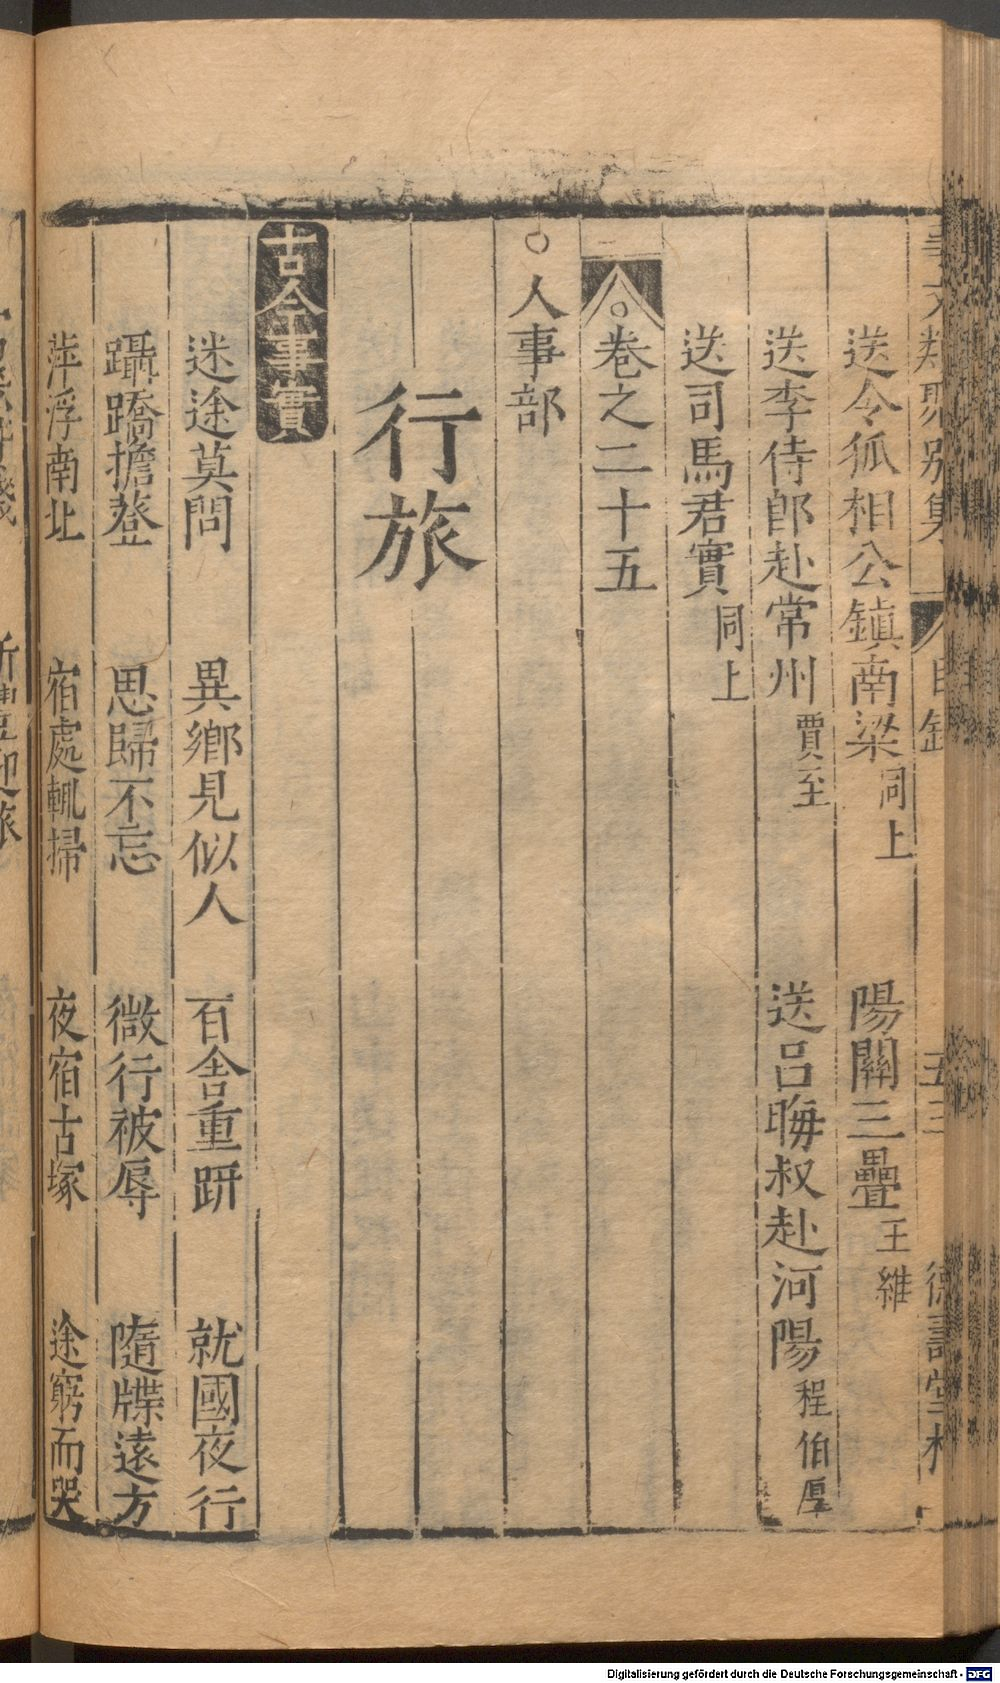 事文類聚別集 目錄 五三 德壽堂梓
送令狐相公鎮南梁 同上 陽關三疊 王維
送李侍郎赴常州 賈至 送呂晦叔赴河陽 程伯厚
送司馬君實 同上
○卷之二十五
○人事部
行旅
古今事實
迷途莫問 異鄉見似人 百舍重趼 就國夜行
躡蹻擔簦 思歸不忘 微行被辱 隨牒遠方
萍浮南北 宿處輒掃 夜宿古塚 途窮而哭
Digitalisierung gefördert durch die Deutsche Forschungsgemeinschaft - DFG